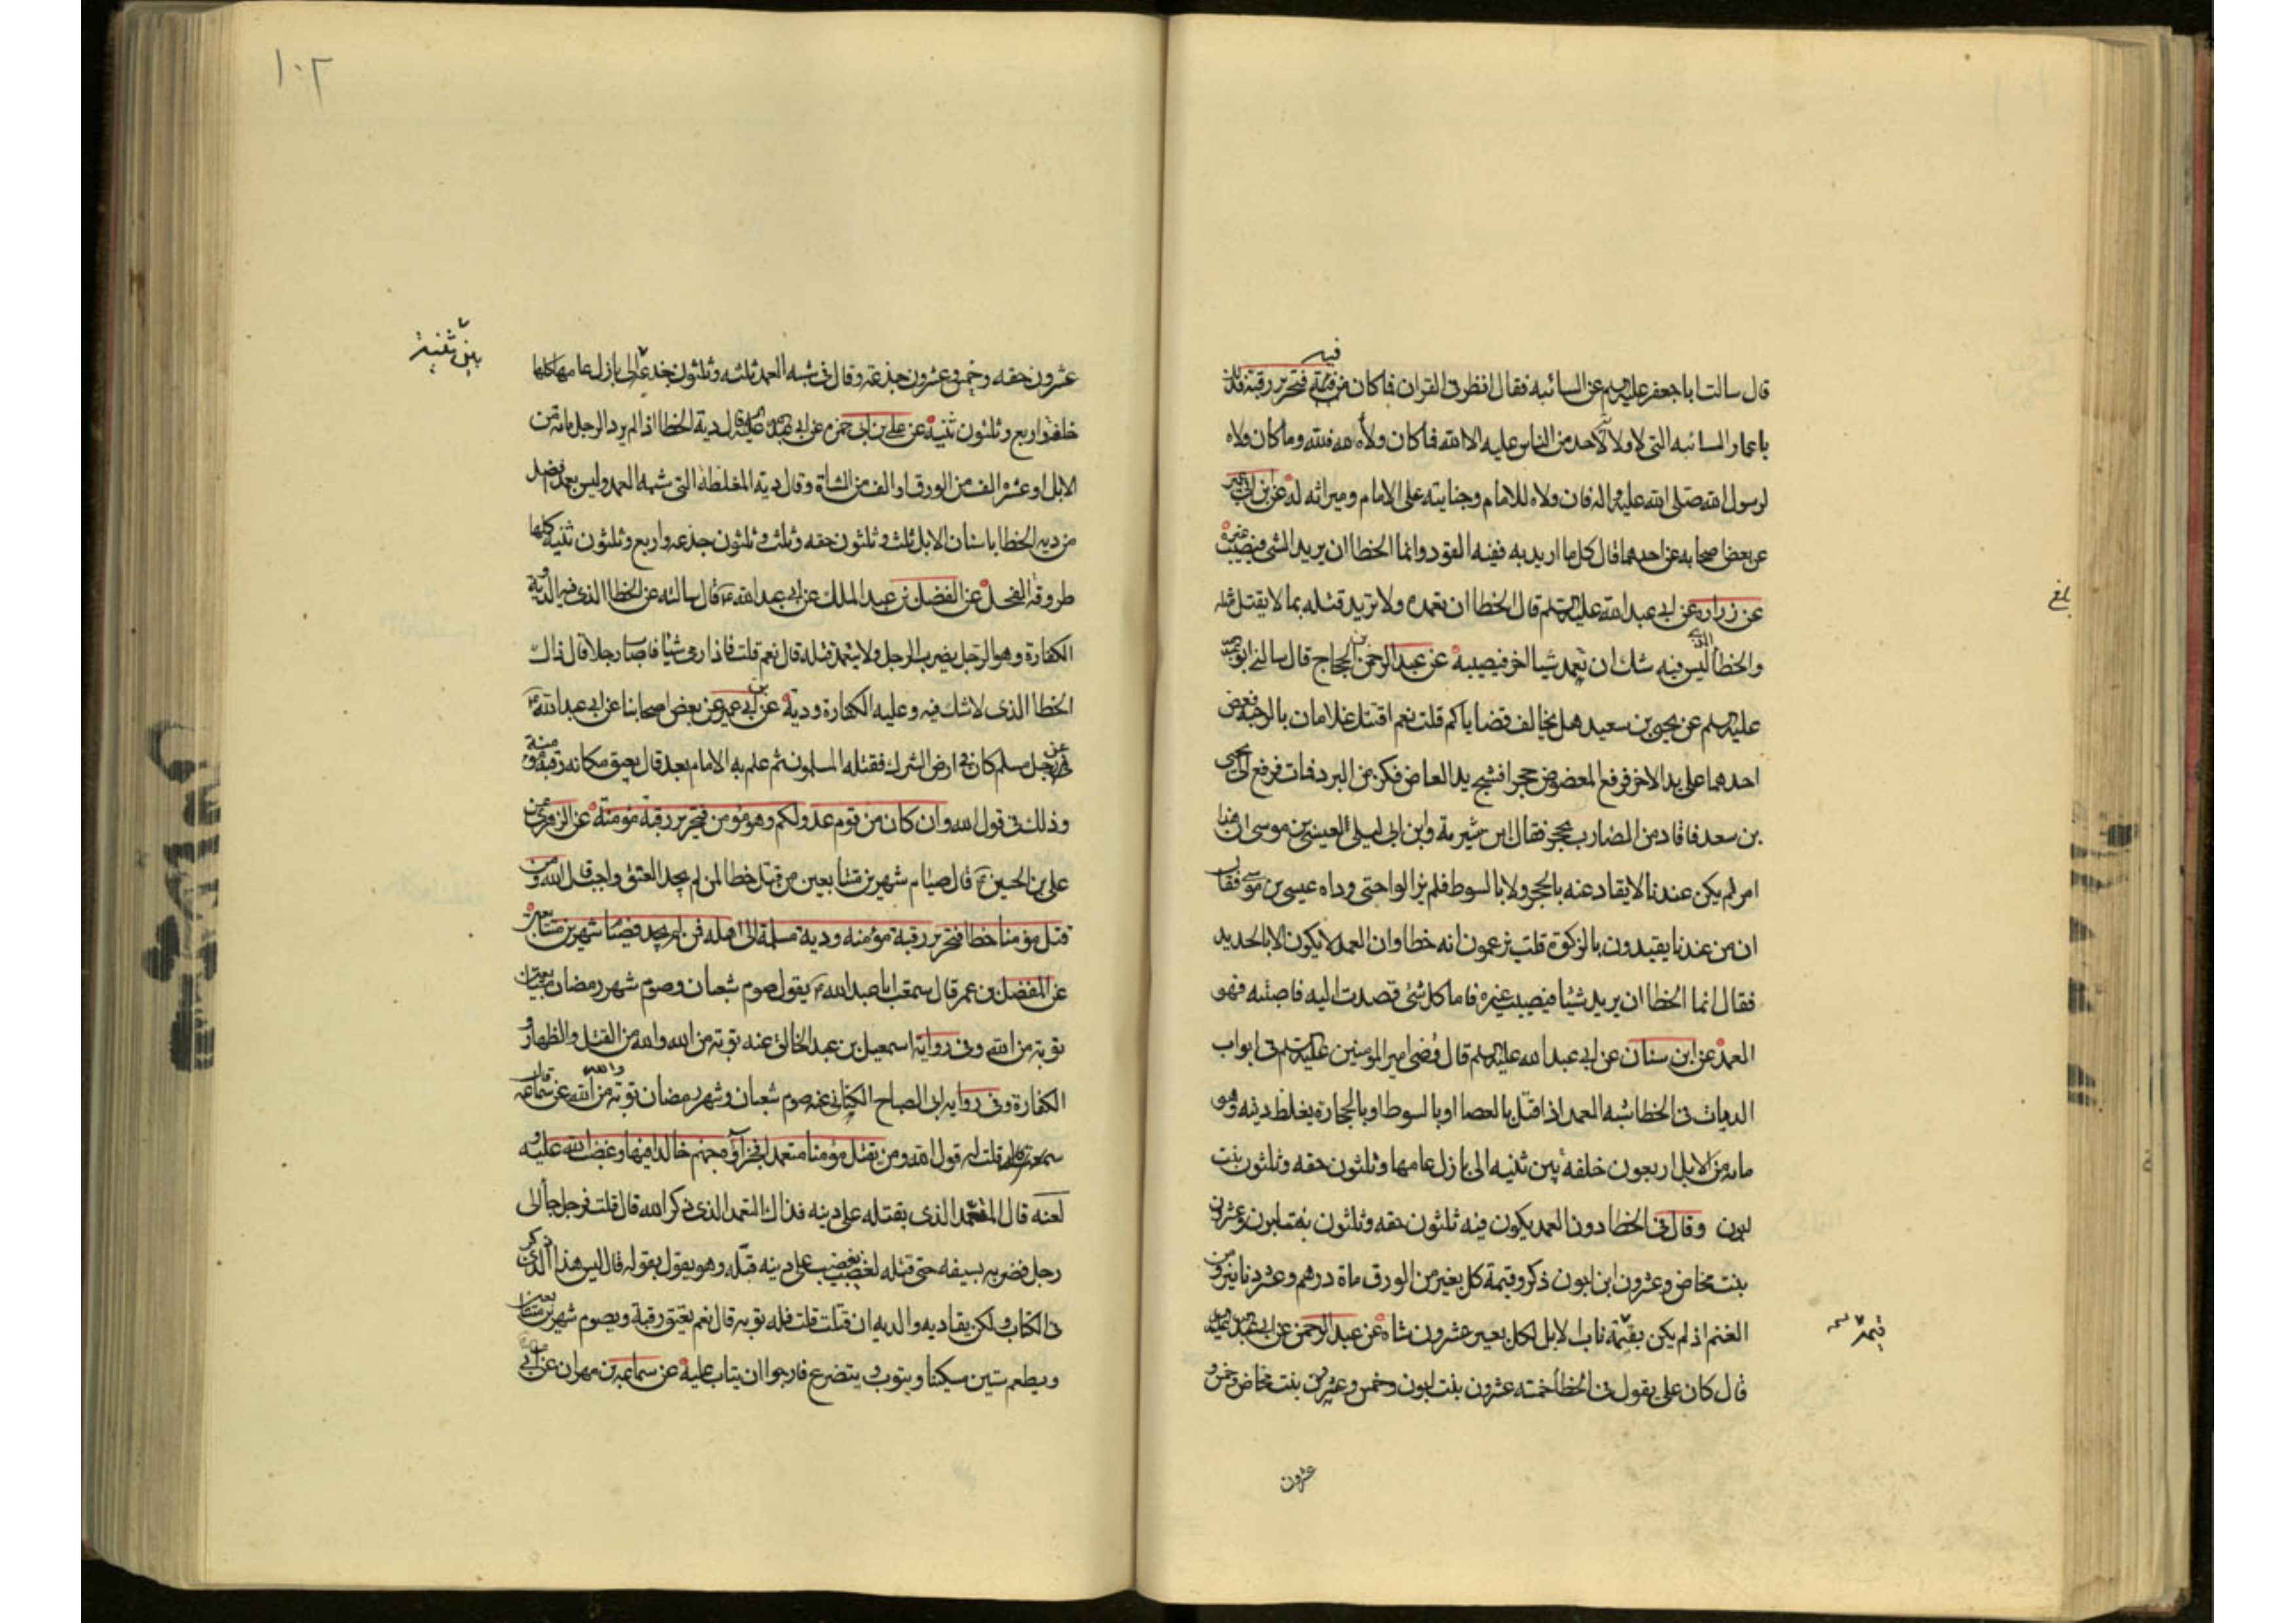 فيه
قال سالت اباجعفر عليه السلم عن السائبه فقال انظر فى القران فما كان فيه فتحرير رقبة فذلك
ياعمار السائبه التى لا ولاء لاحد من الناس عليه الا الله فما كان ولاه لله فلله وما كان ولاه
لرسول الله صلى الله عليه واله فان ولاه للامام وجنايته على الامام وميراثه له عن ابن ابى عمير
عن بعض اصحابه عن احدهما قال كل ما اريد به ففيه القود وانما الخطا ان يريد الشى فيصيب غيره
عن زراره عن ابى عبدالله عليه السلم قال الخطا ان تعمده ولا تريد قتله بما لا يقتل مثله
والخطا الذى ليس فيه شك ان تعمد شيا اخر فيصيبه عن عبدالرحمن بن الحجاج قال سالنى ابو عبدالله
عليه السلم عن يحيى بن سعيد هل يخالف قضاياكم قلت نعم اقتتل غلامان بالرحبه فعض
احدهما على يد الاخر فرفع المعضوض حجرا فشج يد العاض فكز من البرد فمات فرفع الى يحيى
بن سعد فاقاد من الضارب بحجر فقال ابن شبرمة وابن ابى ليلى لعيسى بن موسى ان هذا
امر لم يكن عندنا لا يقاد عنه بالحجر ولا بالسوط فلم يزالوا حتى وداه عيسى بن موسى فقال
ان من عندنا يقيدون بالزكوة قلت يزعمون انه خطا وان العمد لا يكون الا بالحديد
فقال انما الخطا ان يريد شيئا فيصيب غيره فاما كل شى قصدت اليه فاصبته فهو
العمد عن ابن سنان عن ابى عبدالله عليه السلم قال قضى امير المومنين عليه السلم فى ابواب
الديات فى الخطا شبه العمد اذا قتل بالعصا او بالسوط او بالحجارة يغلظ ديته وهو
مايه من الابل اربعون خلفه بين ثنيه الى بازل عامها وثلثون حقه وثلثون بنت
لبون وقال فى الخطا دون العمد يكون فيه ثلثون حقه وثلثون بنت لبون وعشرون
بنت مخاض وعشرون ابن لبون ذكر وقيمة كل بعير من الورق ماة درهم وعشر دنانير ومن
الغنم اذ لم يكن بقيمة ناب الابل لكل بعير عشرون شاة عن عبدالرحمن عن ابى عبدالله عليه
قيمه
قال كان على يقول فى الخطا خمسه عشرون بنت لبون وخمس وعشرون بنت مخاض وخمس و
عشرون
بلغ
١٠٢
بين ثنيه
عشرون حقه وخمس وعشرون جذعة وقال فى شبه العمد ثلثه وثلثون جذعة الى بازل عامها كلها
خلفة واربع وثلثون ثنيه عن على بن ابى حمزه عن ابى عبدالله عليه السلم قال دية الخطا اذا لم يرد الرجل مائه من
الابل او عشره الف من الورق او الف من الشاة وقال دية المغلظة التى شبه العمد وليس بعمد افضل
من دية الخطا باسنان الابل ثلث وثلثون حقه وثلث وثلثون جذعه واربع وثلثون ثنيه كلها
طروقة الفحل عن الفضل بن عبدالملك عن ابى عبدالله ع قال سالته عن الخطا الذى فيه الدية و
الكفارة وهو الرجل يضرب الرجل ولا يتعمد قتله قال نعم قلت فاذا رمى شيئا فاصاب رجلا قال ذاك
الخطا الذى لا شك فيه وعليه الكفارة ودية عن ابن ابى عمير عن بعض اصحابنا عن ابى عبدالله ع
فى رجل مسلم كان فى ارض الشرك فقتله المسلمون ثم علم به الامام بعد قال يعتق مكانه رقبة مؤمنة
وذلك فى قول الله وان كان من قوم عدو لكم وهو مؤمن فتحرير رقبة مؤمنة عن الزهرى عن
على بن الحسين ع قال صيام شهرين متتابعين من قتل خطا لمن لم يجد العتق واجب قال الله ومن
قتل مؤمنا خطا فتحرير رقبة مؤمنه ودية مسلمة الى اهله فمن لم يجد فصيام شهرين متتابعين
عن المفضل بن عمر قال سمعت اباعبدالله ع يقول صوم شعبان وصوم شهر رمضان متتابعين
توبة من الله وفى رواية اسمعيل بن عبدالخالق عنه توبة من الله والله من القتل والظهار و
الكفارة وفى رواية ابى الصباح الكنانى عنه صوم شعبان وشهر رمضان توبة والله من الله عن سماعه قال
قلت له قول الله ومن يقتل مؤمنا متعمدا فجزاؤه جهنم خالدا فيها وغضب الله عليه و
لعنه قال المتعمد الذى يقتله على دينه فذاك التعمد الذى ذكر الله قال قلت فرجل جا الى
رجل فضربه بسيفه حتى قتله لغضب لا على دينه قتله وهو يقول بقوله قال ليس هذا الذى ذكر
فى الكتاب ولكن يقاد به والديه ان قتلت قلت فله توبه قال نعم يعتق رقبة ويصوم شهرين متتابعين
ويطعم ستين مسكينا ويتوب ويتضرع فارجوا ان يتاب عليه عن سماعه بن مهران عن ابى